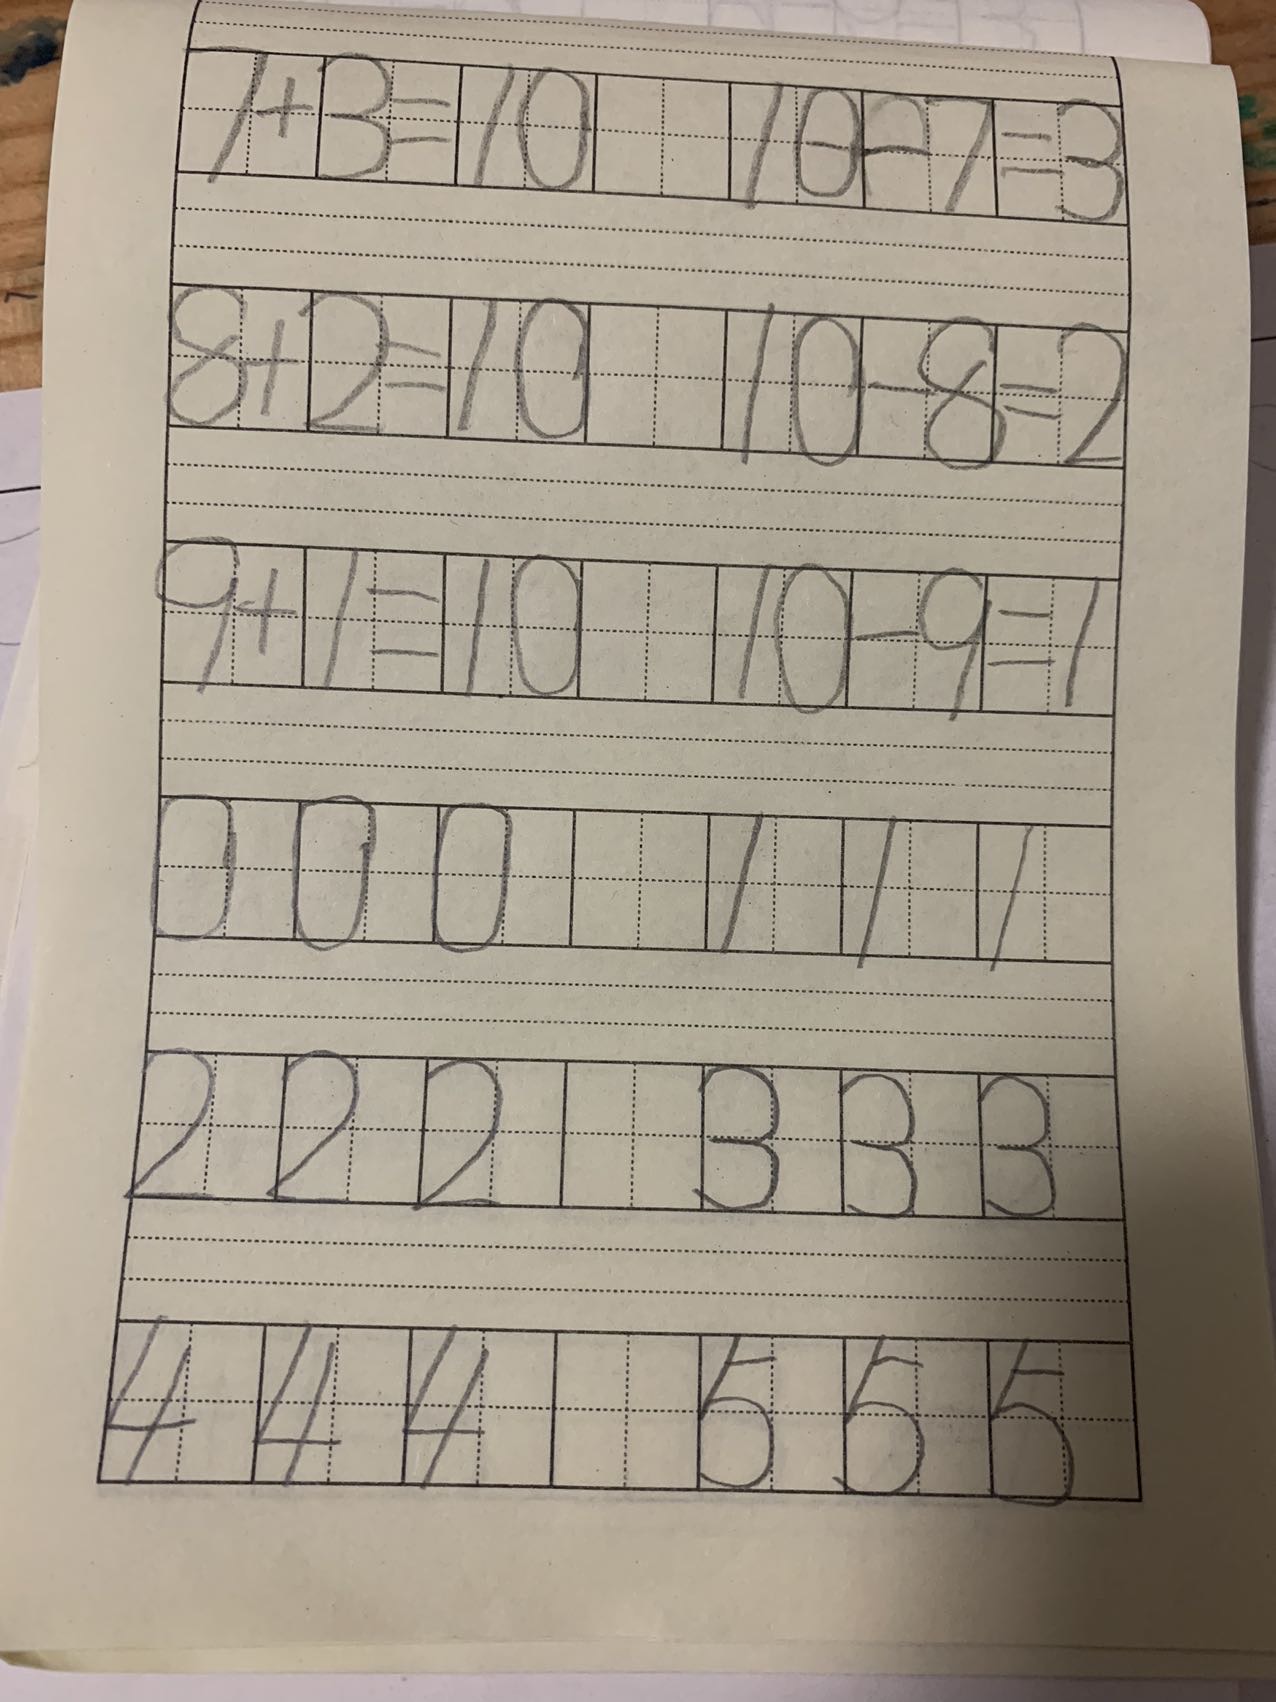 7+3=10 10-7=3
8+2=10 10-8=2
9+1=10 10-9=1
0 0 0 1 1 1
2 2 2 3 3 3
4 4 4 5 5 5